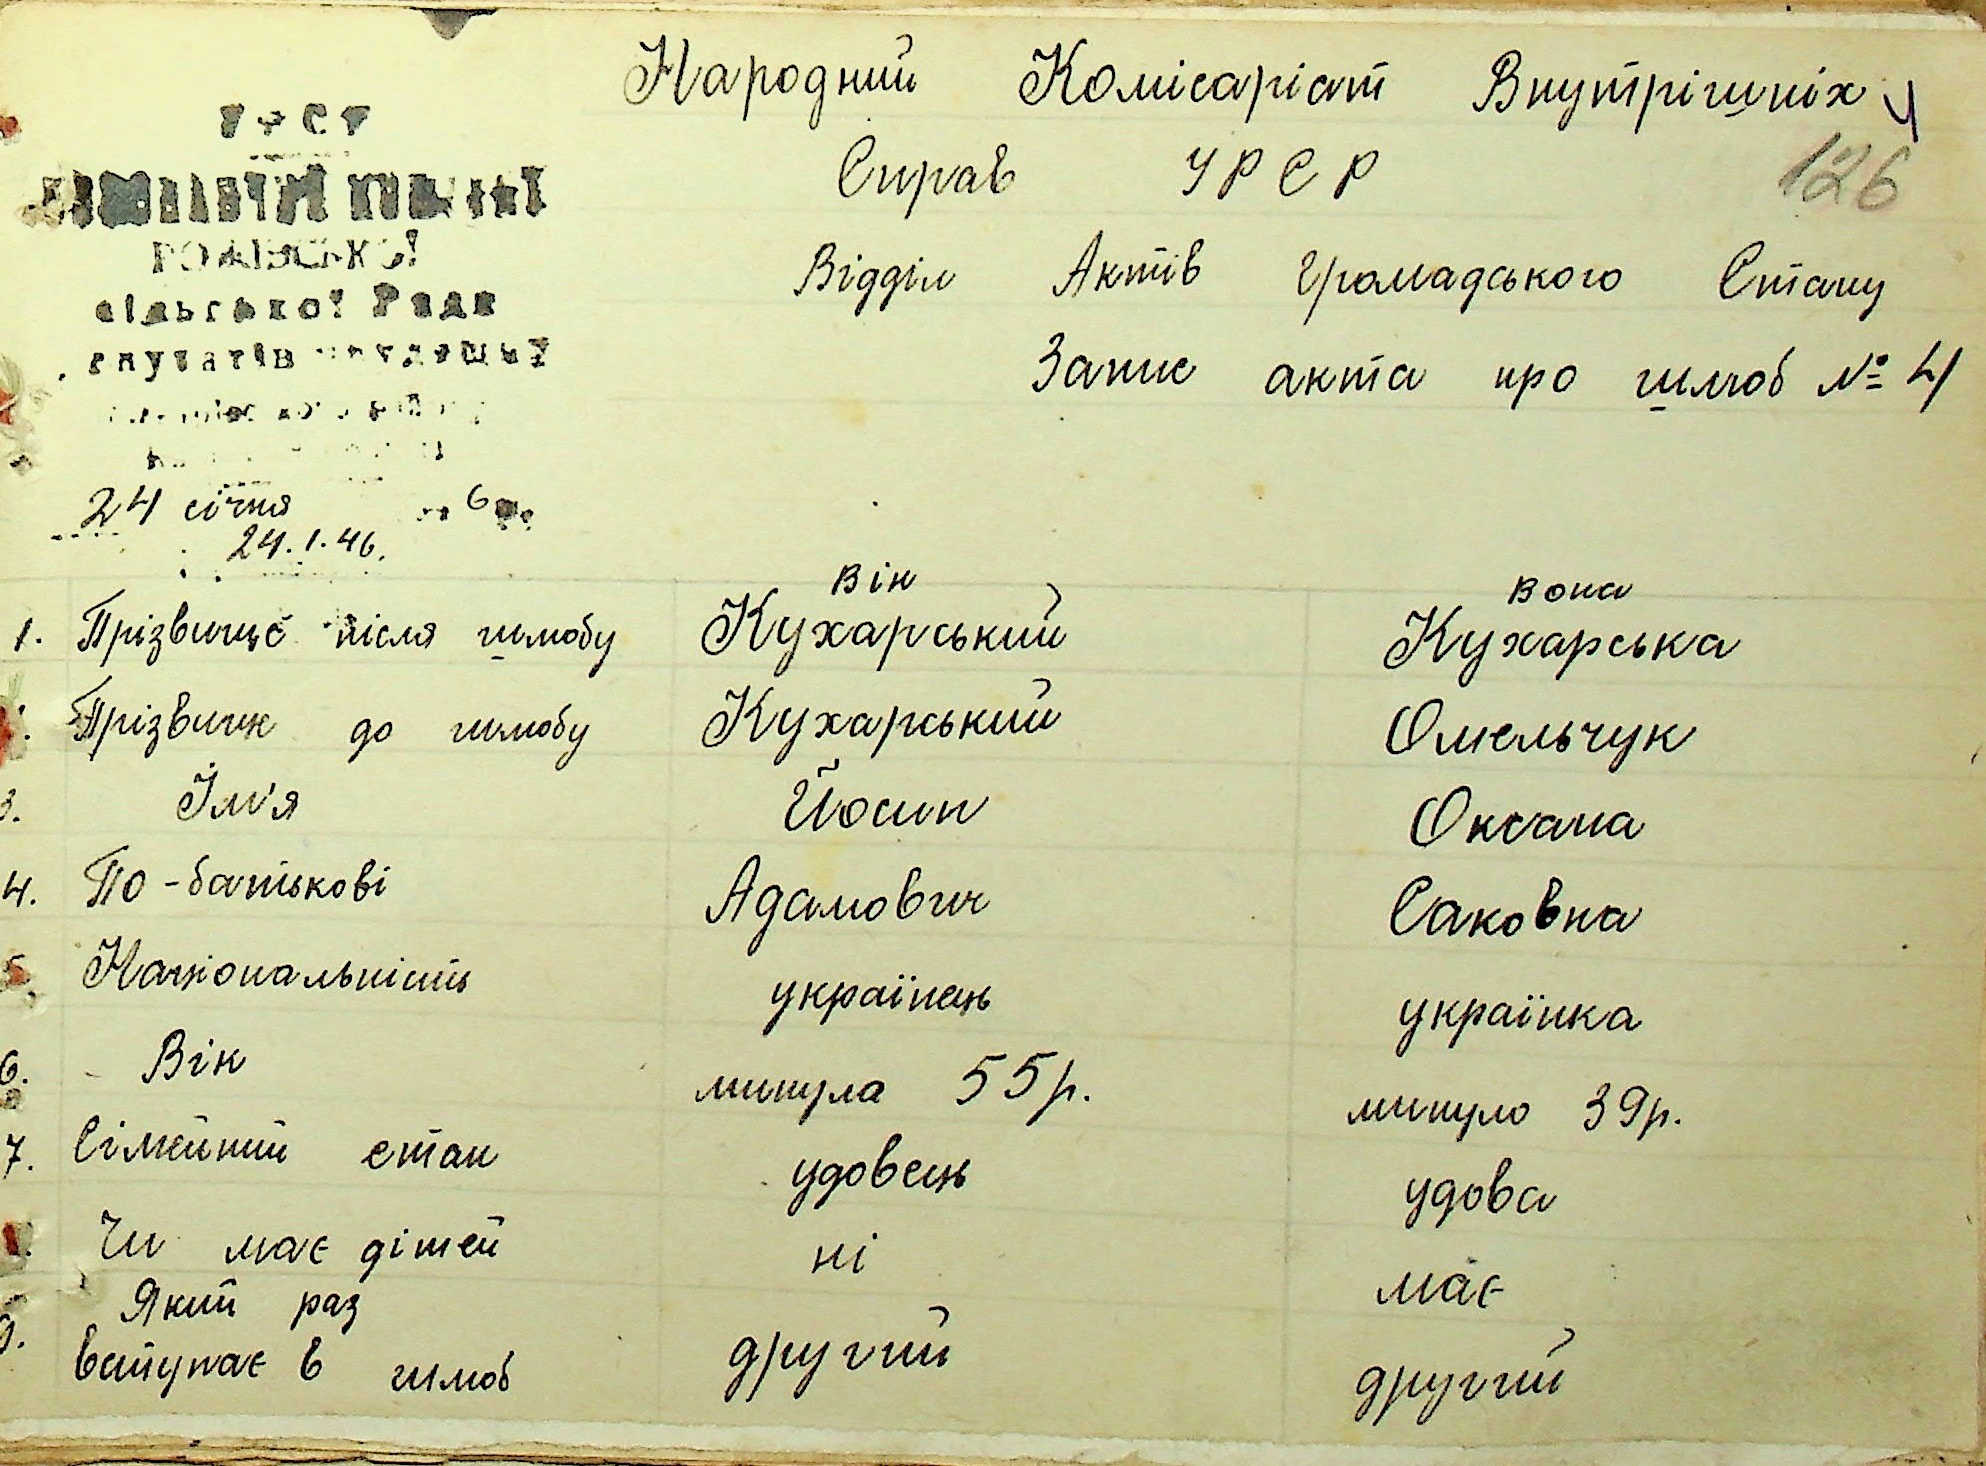 Народний Комісаріат Внутрішніх
Справ УРСР
126
Відділ Актів Громадського Стану
Запис акта про шлюб № 4
сільської Ради
24 січня 6
24.1.46.
він вона
1. Прізвище після шлюбу Кухарський Кухарська
Прізвище до шлюбу Кухарський Омельчук
3. Їм'я Йосип Оксана
4. По-батькові Адамович Саковна
5. Національність українець українка
6. Вік минула 55р. минуло 39р.
7. Сімейний стан удовець удова
Чи має дітей ні має
9. Який раз
вступає в шлюб другий другий